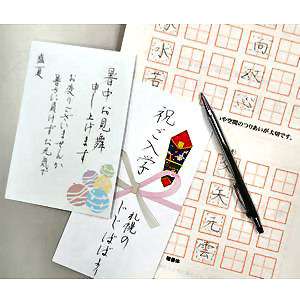 暑中お見舞
申し上げます
お変りございませんか
暑さに負けずお元気で
盛夏
祝ご入学
札幌の
じじばばより
水
若
向
双
心
や空間のつりあいが大切です。
天
元
雲